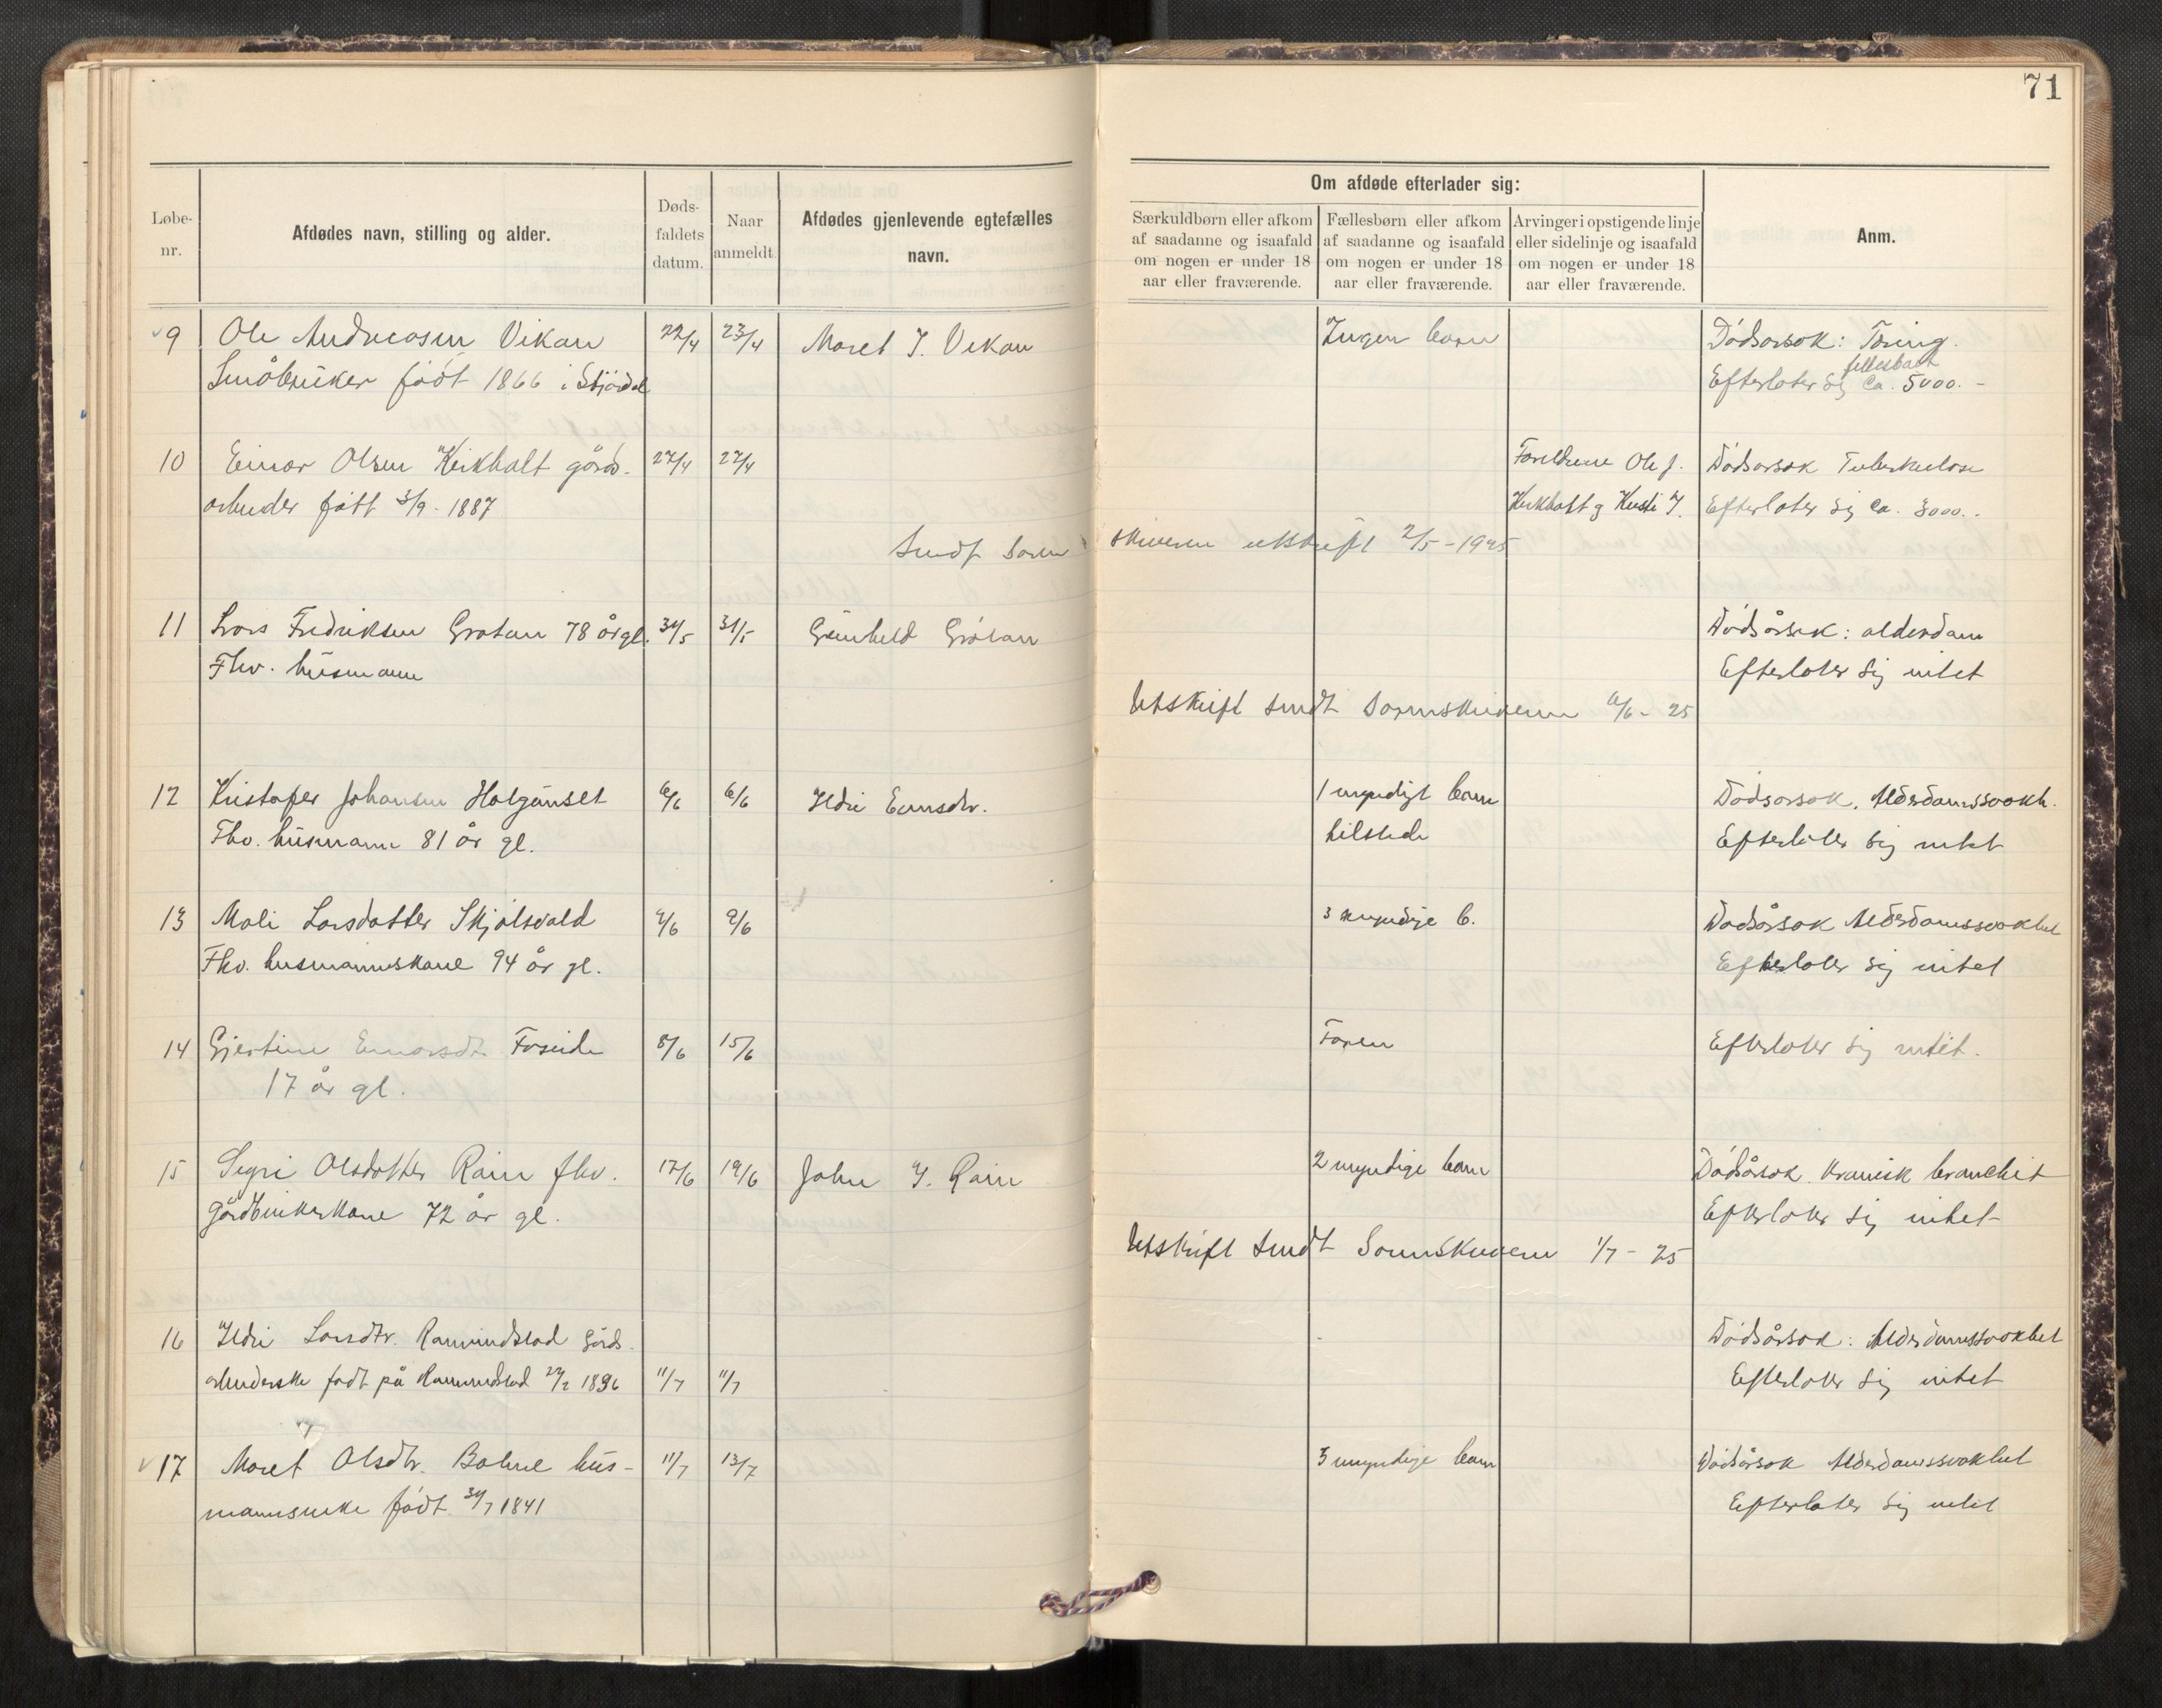 71
Løbe-
nr.
Afdødes navn, stilling og alder.
Døds-
faldets
datum.
Naar
anmeldt
Afdødes gjenlevende egtefælles
navn.
Om afdøde efterlader sig:
Særkuldbørn eller afkom
af saadanne og isaafald
om nogen er under 18
aar eller fraværende.
Fællesbørn eller afkom
af saadanne og isaafald
om nogen er under 18
aar eller fraværende.
Arvinger i opstigende linje
eller sidelinje og isaafald
om nogen er under 18
aar eller fraværende.
Anm.
9 Ole Andreasen Vikan 22/4 23/4 Maret J. Vikan Ingen barn Dödsorsok: Tæring.
Småbruker födt 1866 i Stjördal Efterlater sig fellesboet ca. 5000.-
10 Einar Olsen Kirkholt gårds- 27/4 27/4 Foreldrene Ole J. Dödsorsok Tuberkulose
arbeider födt 3/9-1887 Kirkholt g Kirsti J. Efterlater sig ca. 3000.-
Sendt Soren skriveren utskrift 2/5-1925
11 Lars Fredriksen Grøtan 78 år gl. 31/5 Gunhild Grötan Dödsårsak: alderdom
Fhv. husmann Efterlater sig intet
Utskrift sendt Sorenskriveren 6/6-25
12 Kristofer Johansen Holgånset 6/6 6/6 Ildri Einarsdtr. 1 myndigt barn Dödsorsok. Alderdomssvakh.
Fhv. husmann 81 år gl. tilstede Efterlater sig intet
13 Mali Larsdatter Skjölsvold 9/6 3 myndige b. Dödsårsak Alderdomssvakhet
Fhv. husmannskone 94 år gl. Efterlater sig intet
14 Gjertine Einarsdtr. Foseide 8/6 15/6 Faren Efterlater sig intet.
17 år gl.
15 Sigri Olsdatter Råen fhv. 17/6 19/6 John J. Råen 2 myndige barn Dödsårsak. Kronisk bronchit
gårdbrukerkone 72 år gl. Efterlater sig intet
Utskrift sendt Sorenskriveren 1/7-25
16 Ildri Larsdtr. Ramundstad gårds- Dödsårsak: Alderdomssvakhet
arbeiderske födt på Ramundstad 1836 11/7 11/7 Efterlater sig intet
17 Maret Olsdtr. hus- 11/7 13/7 3 myndige barn Dödsårsak Alderdomssvakhet
mannsenke födt 1841 Efterlater sig intet